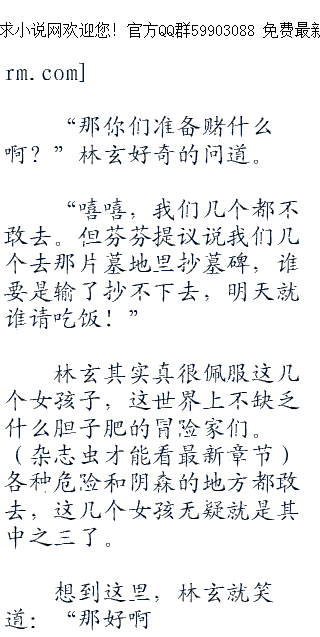 求小说网欢迎您! 官方QQ群59903088 免费最新
rm.com]
“那你们准备赌什么
啊？”林玄好奇的问道。
“嘻嘻，我们几个都不
敢去。但芬芬提议说我们几
个去那片墓地里抄墓碑，谁
要是输了抄不下去，明天就
谁请吃饭！”
林玄其实真很佩服这几
个女孩子，这世界上不缺乏
什么胆子肥的冒险家们。
（杂志虫才能看最新章节）
各种危险和阴森的地方都敢
去，这几个女孩无疑就是其
中之三了。
想到这里，林玄就笑
道：“那好啊